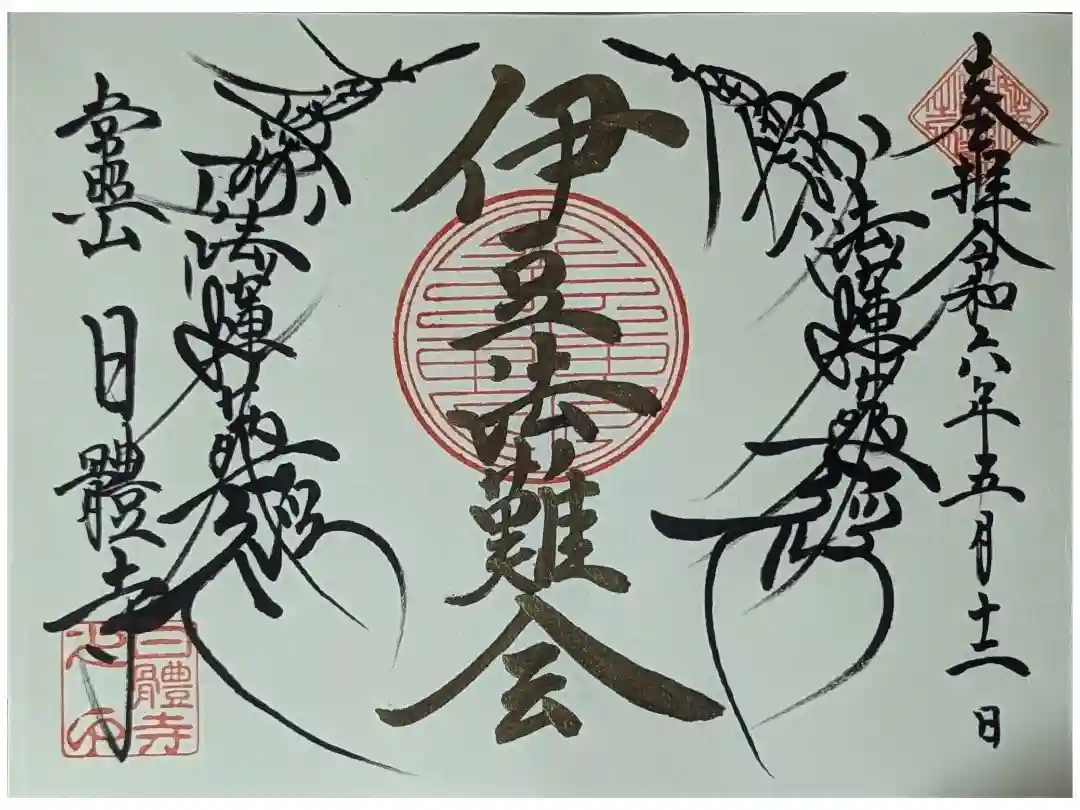 奉拝 令和六年五月十二日
南無妙法蓮華經
伊豆法難会
南無妙法蓮華經
常照山 日體寺
日體寺
之印